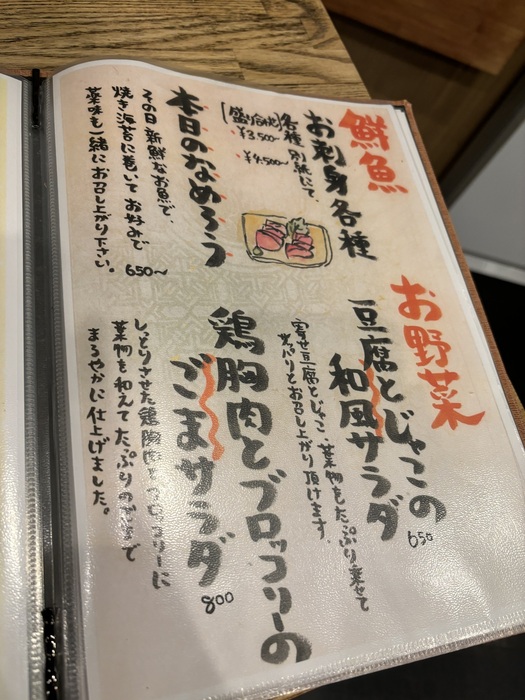 鮮魚
お刺身各種
各種別紙にて。
[盛り合わせ]
¥3,500〜
¥4,500〜
本日のなめろう
その日新鮮なお魚で、
焼き海苔に巻いてお好みで
薬味も一緒にお召し上がり下さい。
650〜
お野菜
豆腐とじゃこの
和風サラダ
650
寄せ豆腐とじゃこ、葉物をたっぷり乗せて
さっぱりとお召し上がり頂けます。
鶏胸肉とブロッコリーの
ごまサラダ
800
しっとりさせた鶏胸肉とブロッコリーに
葉物を和えてたっぷりのごまで
まろやかに仕上げました。